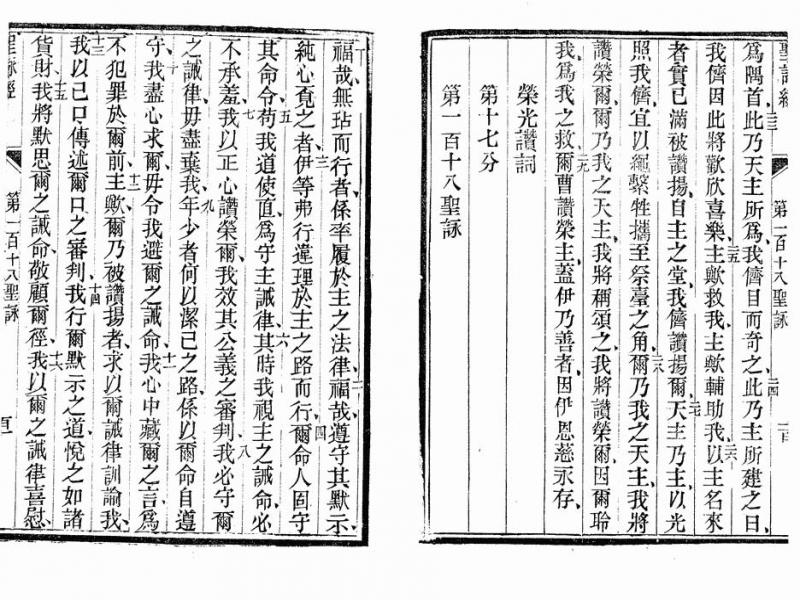 聖詠經
第一百十八聖詠
二三
爲隅首此乃天主所爲我儕目而奇之此乃主所建之日
二四
我儕因此將歡欣喜樂主歟救我主歟輔助我以主名來
二五
二六
者實已滿被讚揚自主之堂我儕讚揚爾天主乃主以光
二七
照我儕宜以繩繫牲攜至祭臺之角爾乃我之天主我將
二八
讚榮爾爾乃我之天主我將稱頌之我將讚榮爾因爾聆
我爲我之救爾曹讚榮主蓋伊乃善者因伊恩慈永存
二九
榮光讚詞
第十七分
第一百十八聖詠
一
福哉無玷而行者係率履於主之法律福哉遵守其默示
二
純心覓之者伊等弗行違理於主之路而行爾命人固守
三
四
其命令苟我道使直爲守主誡律其時我視主之誡命必
五
六
不承羞我以正心讚榮爾我效其公義之審判我必守爾
七
八
之誡律毋盡棄我年少者何以潔己之路係以爾命自遵
九
守我盡心求爾毋令我避爾之誡命我心中藏爾之言爲
十
十一
不犯罪於爾前主歟爾乃被讚揚者求以爾誡律訓諭我
十二
十三
我以己口傳述爾口之審判我行爾默示之道悅之如諸
十四
貨財我將默思爾之誡命敬顧爾徑我以爾之誡律喜慰
十五
十六
聖詠經
第一百十八聖詠